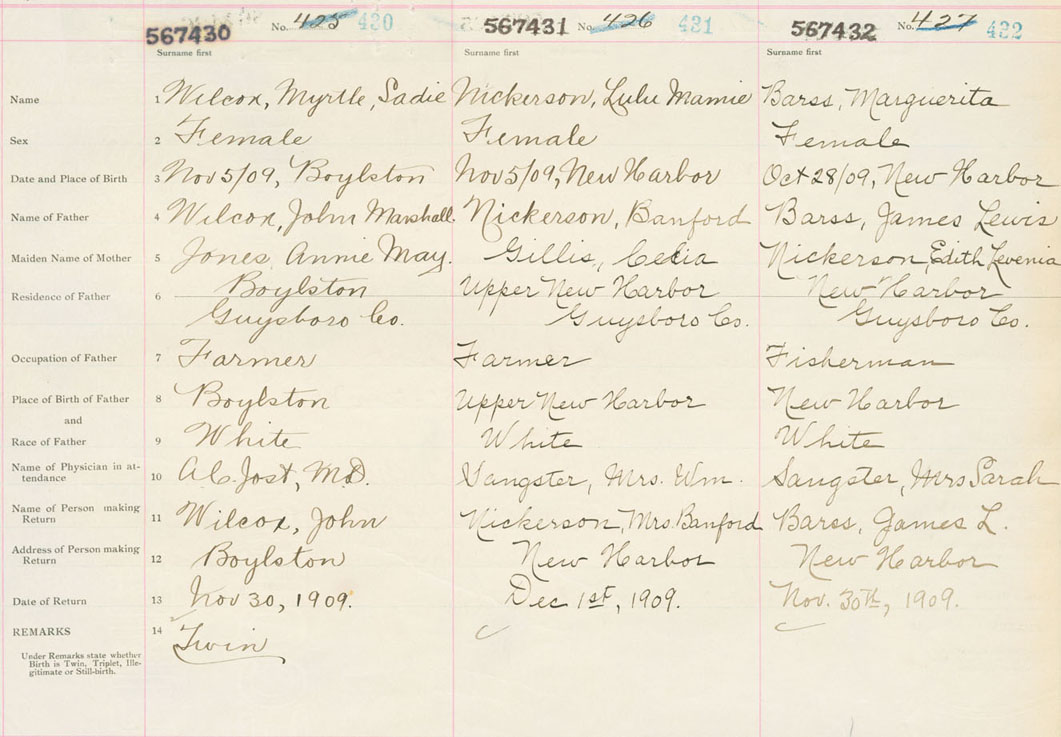 567430 No. 425 430 567431 No. 426 431 567432 No. 427 432
Surname first Surname first Surname first
Name 1 Wilcox, Myrtle, Sadie Nickerson, Lulu Mamie Barss, Marguerita
Sex 2 Female Female Female
Date and Place of Birth 3 Nov 5/09, Boylston Nov 5/09, New Harbor Oct 28/09, New Harbor
Name of Father 4 Wilcox, John Marshall. Nickerson, Banford Barss, James Lewis
Maiden Name of Mother 5 Jones, Annie May. Gillis, Celia Nickerson, Edith Levenia
Residence of Father 6 Boylston Upper New Harbor New Harbor
Guysboro Co. Guysboro Co. Guysboro Co.
Occupation of Father 7 Farmer Farmer Fisherman
Place of Birth of Father 8 Boylston Upper New Harbor New Harbor
and
Race of Father 9 White White White
Name of Physician in at-
tendance 10 A.C. Jost, M.D. Sangster, Mrs. Wm. Sangster, Mrs Sarah
Name of Person making
Return 11 Wilcox, John Nickerson, Mrs. Banford Barss, James L.
Address of Person making
Return 12 Boylston New Harbor New Harbor
Date of Return 13 Nov 30, 1909. Dec 1st, 1909. Nov. 30th, 1909.
REMARKS 14 Twin
Under Remarks state whether
Birth is Twin, Triplet, Ille-
gitimate or Still-birth.